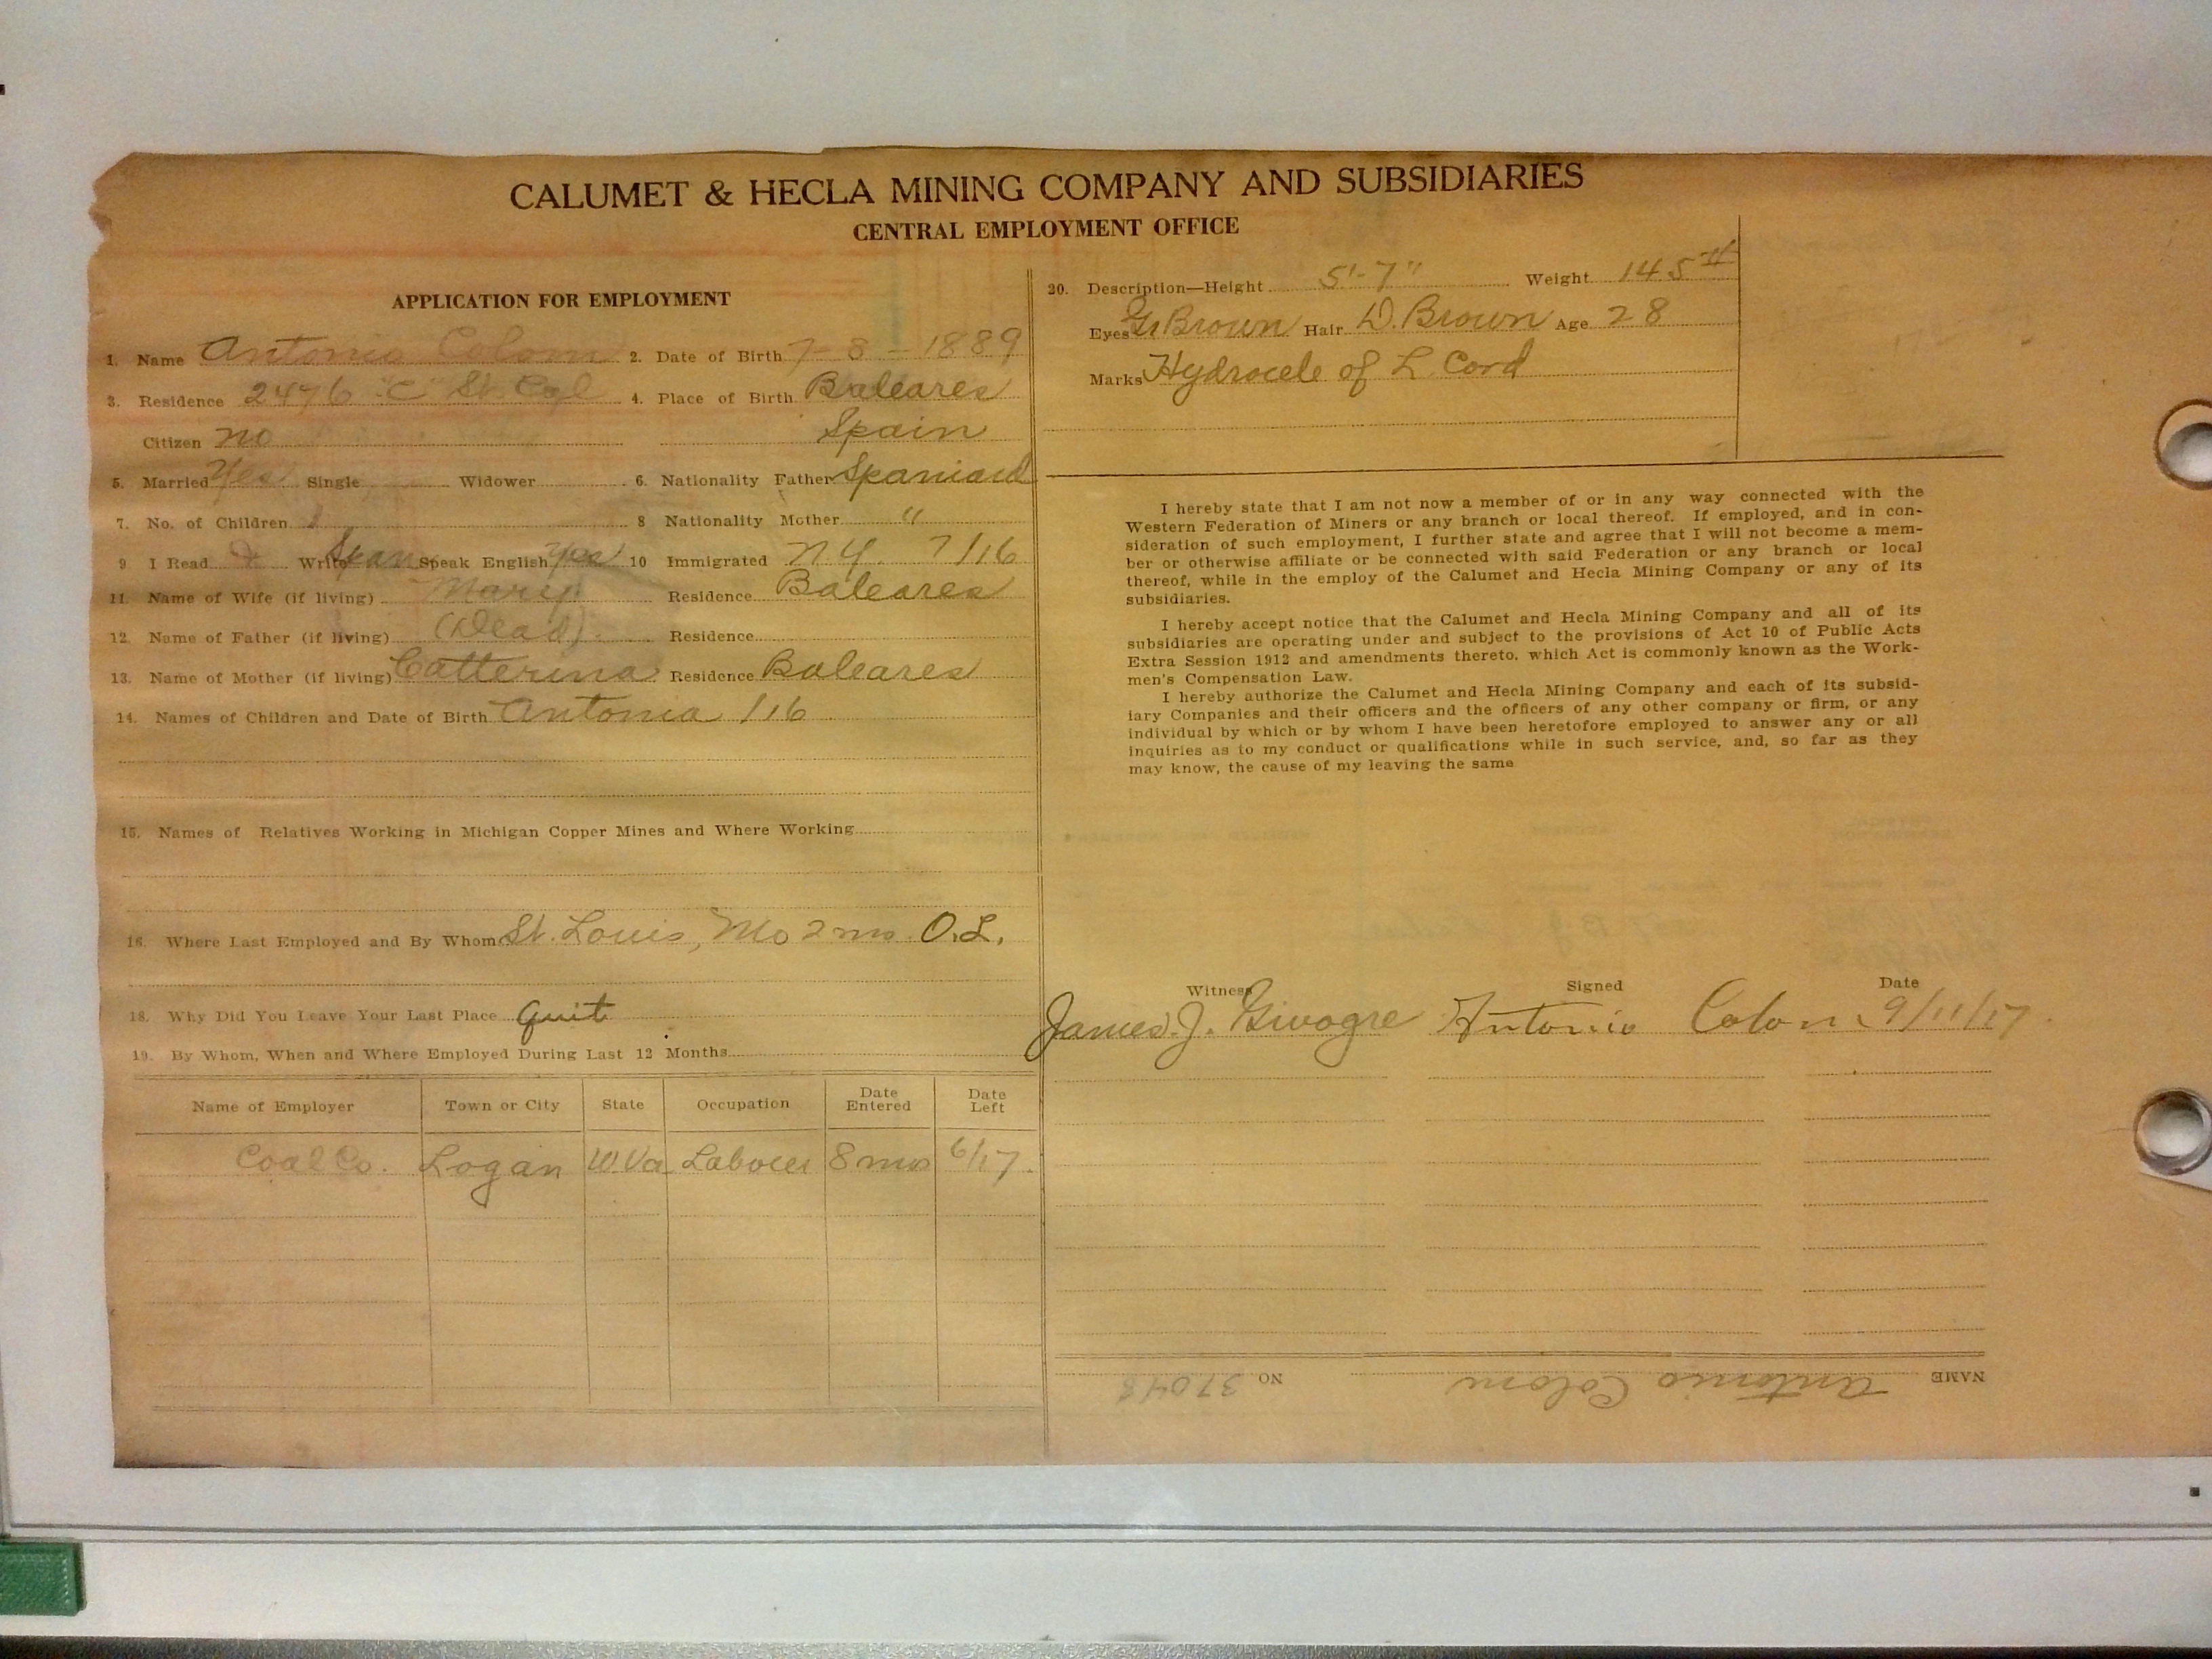 CALUMET & HECLA MINING COMPANY AND SUBSIDIARIES
CENTRAL EMPLOYMENT OFFICE
APPLICATION FOR EMPLOYMENT
1. Name Antonio Colom 2. Date of Birth 7-8-1889
3. Residence 2476 "C" St. Cal 4. Place of Birth Baleares
Citizen no Spain
5. Married Yes Single Widower 6. Nationality Father Spaniard
7. No. of Children 8 Nationality Mother "
9 I Read Write Span Speak English Yes 10 Immigrated N.Y. 7/16
11. Name of Wife (if living) Mary Residence Baleares
12. Name of Father (if living) (Dead) Residence
13. Name of Mother (if living) Catterina Residence Baleares
14. Names of Children and Date of Birth Antonia 1/16
15. Names of Relatives Working in Michigan Copper Mines and Where Working
16. Where Last Employed and By Whom St. Louis, Mo 2 mo O.L.
18. Why Did You Leave Your Last Place quit
19. By Whom, When and Where Employed During Last 12 Months
Name of Employer Town or City State Occupation Date Entered Date Left
Coal Co. Logan W Va Laborer 8 mos 6/17.
20. Description—Height 5'-7" Weight 145 #
Eyes Gr Brown Hair D. Brown Age 28
Marks Hydrocele of L Cord
I hereby state that I am not now a member of or in any way connected with the
Western Federation of Miners or any branch or local thereof. If employed, and in con-
sideration of such employment, I further state and agree that I will not become a mem-
ber or otherwise affiliate or be connected with said Federation or any branch or local
thereof, while in the employ of the Calumet and Hecla Mining Company or any of its
subsidiaries.
I hereby accept notice that the Calumet and Hecla Mining Company and all of its
subsidiaries are operating under and subject to the provisions of Act 10 of Public Acts
Extra Session 1912 and amendments thereto, which Act is commonly known as the Work-
men's Compensation Law.
I hereby authorize the Calumet and Hecla Mining Company and each of its subsid-
iary Companies and their officers and the officers of any other company or firm, or any
individual by which or by whom I have been heretofore employed to answer any or all
inquiries as to my conduct or qualifications while in such service, and, so far as they
may know, the cause of my leaving the same
Witness Signed Date
James J. Antonio Colom 9/11/17
NAME Antonio Colom NO 37048